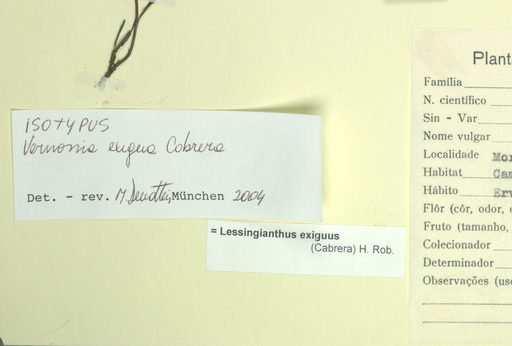 ISOTYPUS
Vernonia exigua Cabrera
Det. - rev. M. Dematteis, München 2004
= Lessingianthus exiguus
(Cabrera) H. Rob.
Família
N. científico
Sin - Var
Nome vulgar
Localidade
Habitat
Hábito
Flôr (côr, odor,
Fruto (tamanho,
Colecionador
Determinador
Observações